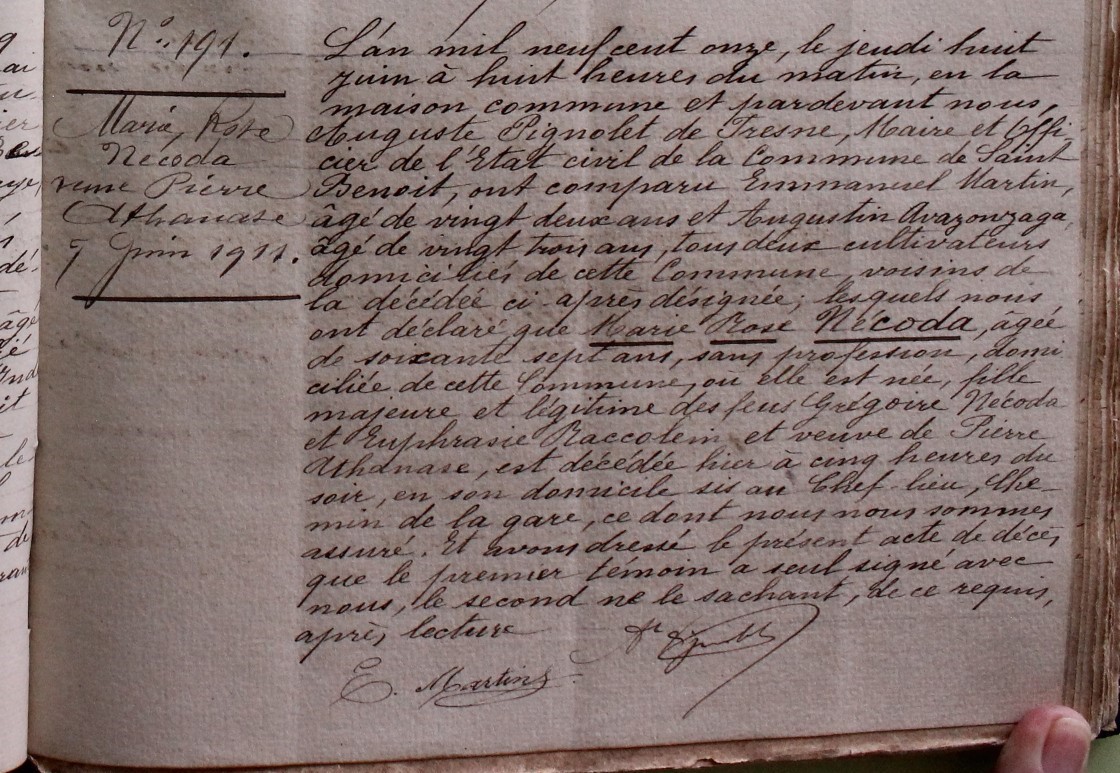 N.° 191.
Marie, Rose
Nécoda
veuve Pierre
Athanase
7 Juin 1911.
L'an mil neuf cent onze, le jeudi huit
juin à huit heures du matin, en la
maison commune et pardevant nous,
Auguste Pignolet de Fresne, Maire et Offi
cier de l'Etat civil de la Commune de Saint
Benoit, ont comparu Emmanuel Martin,
âgé de vingt deux ans et Augustin Avazonzaga,
âgé de vingt trois ans, tous deux cultivateurs
domiciliés de cette Commune, voisins de
la décédée ci-après désignée; lesquels nous
ont déclaré que Marie Rose Nécoda, âgée
de soixante sept ans, sans profession, domi
ciliée de cette Commune, ou elle est née, fille
majeure et légitime des feus Grégoire Nécoda
et Euphrasie Raccolein et veuve de Pierre
Athanase, est décédée hier à cinq heures du
soir, en son domicile sis au Chef-lieu, Che-
min de la gare, ce dont nous nous sommes
assuré. Et avons dressé le présent acte de décès,
que le premier témoin a seul signé avec
nous, le second ne le sachant, de ce requis,
après lecture
E. Martin